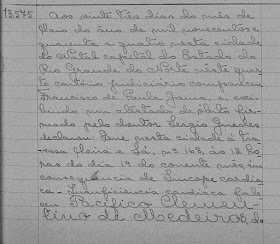 13.575
Aos vinte três dias do mês de
Maio do ano de mil novecentos e
quarenta e quatro nesta cidade
do Natal capital do Estado do
Rio Grande do Norte neste quar
to cartório judiciário compareceu
Francisco de Paula Gama, e, exi
bindo um atestado de óbito fir
mado pelo doutor Sergio Guedes
declarou: Que nesta cidade á tra
vessa Meira e Sá, nº 168, ás 12 ho
ras do dia 19 do corrente mês, em
consequencia de Sincope cardia
ca - Insuficiencia cardiaca fale
ceu Pacifico Clemen
tino de Medeiros, do